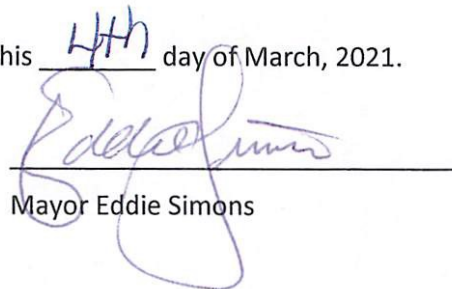 his 4th day of March, 2021.
Eddie Simons
Mayor Eddie Simons